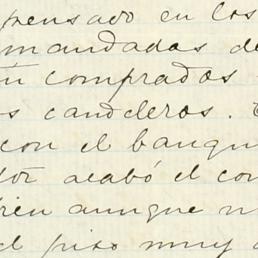 pensado en los
mandadas de
comprados
candeleros.
con el banqu
acabó el con
bien aunque n
el piso muy